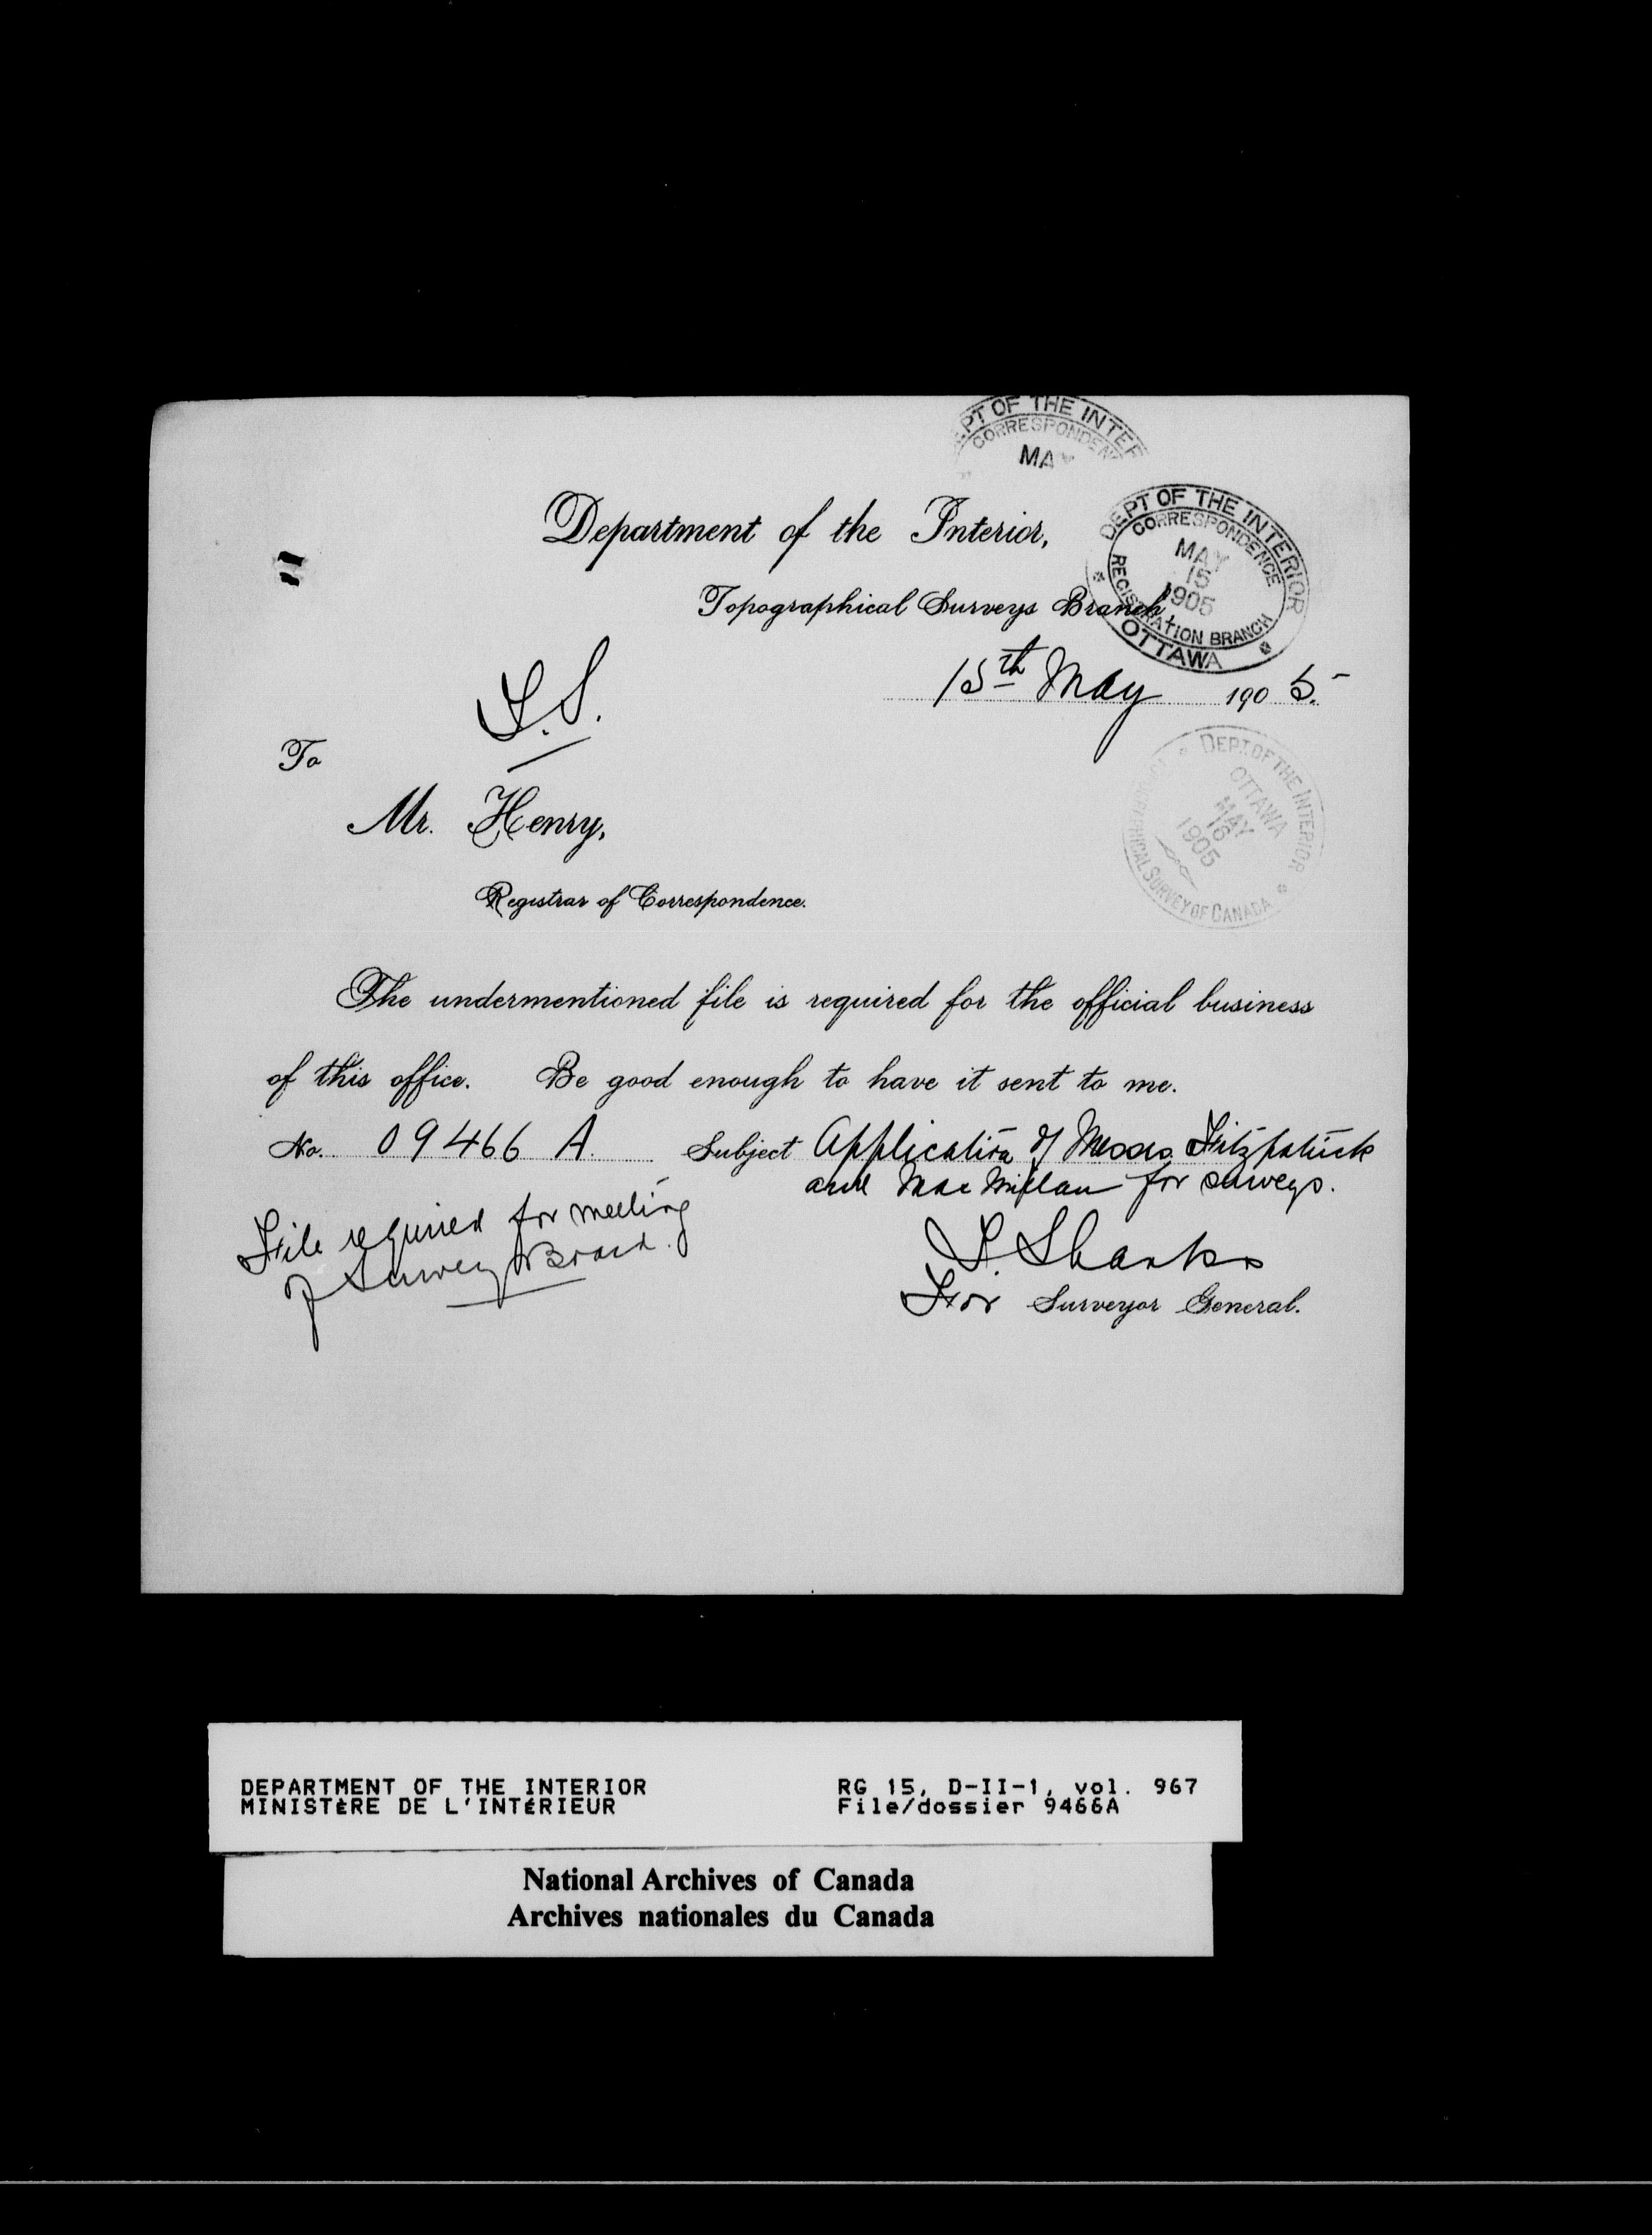 DEPT OF THE INTER
CORRESPONDEN
MA
Department of the Interior,
DEPT OF THE INTERIOR
CORRESPONDENCE
MAY
15
1905
REGISTRATION BRANCH
OTTAWA
Topographical Surveys Branch,
15th May 1905.
S.S.
To
Mr. Henry,
Registrar of Correspondence.
DEPT. OF THE INTERIOR
OTTAWA
MAY
16
1905
TOPOGRAPHICAL SURVEY OF CANADA
The undermentioned file is required for the official business
of this office. Be good enough to have it sent to me.
No. 09466 A. Subject Application of Messrs. Fitzpatrick
and MacMillan for surveys.
File required for meeting
of Survey Board.
T. Shanks
For Surveyor General.
DEPARTMENT OF THE INTERIOR RG 15, D-II-1, vol. 967
MINISTÈRE DE L'INTÉRIEUR File/dossier 9466A
National Archives of Canada
Archives nationales du Canada